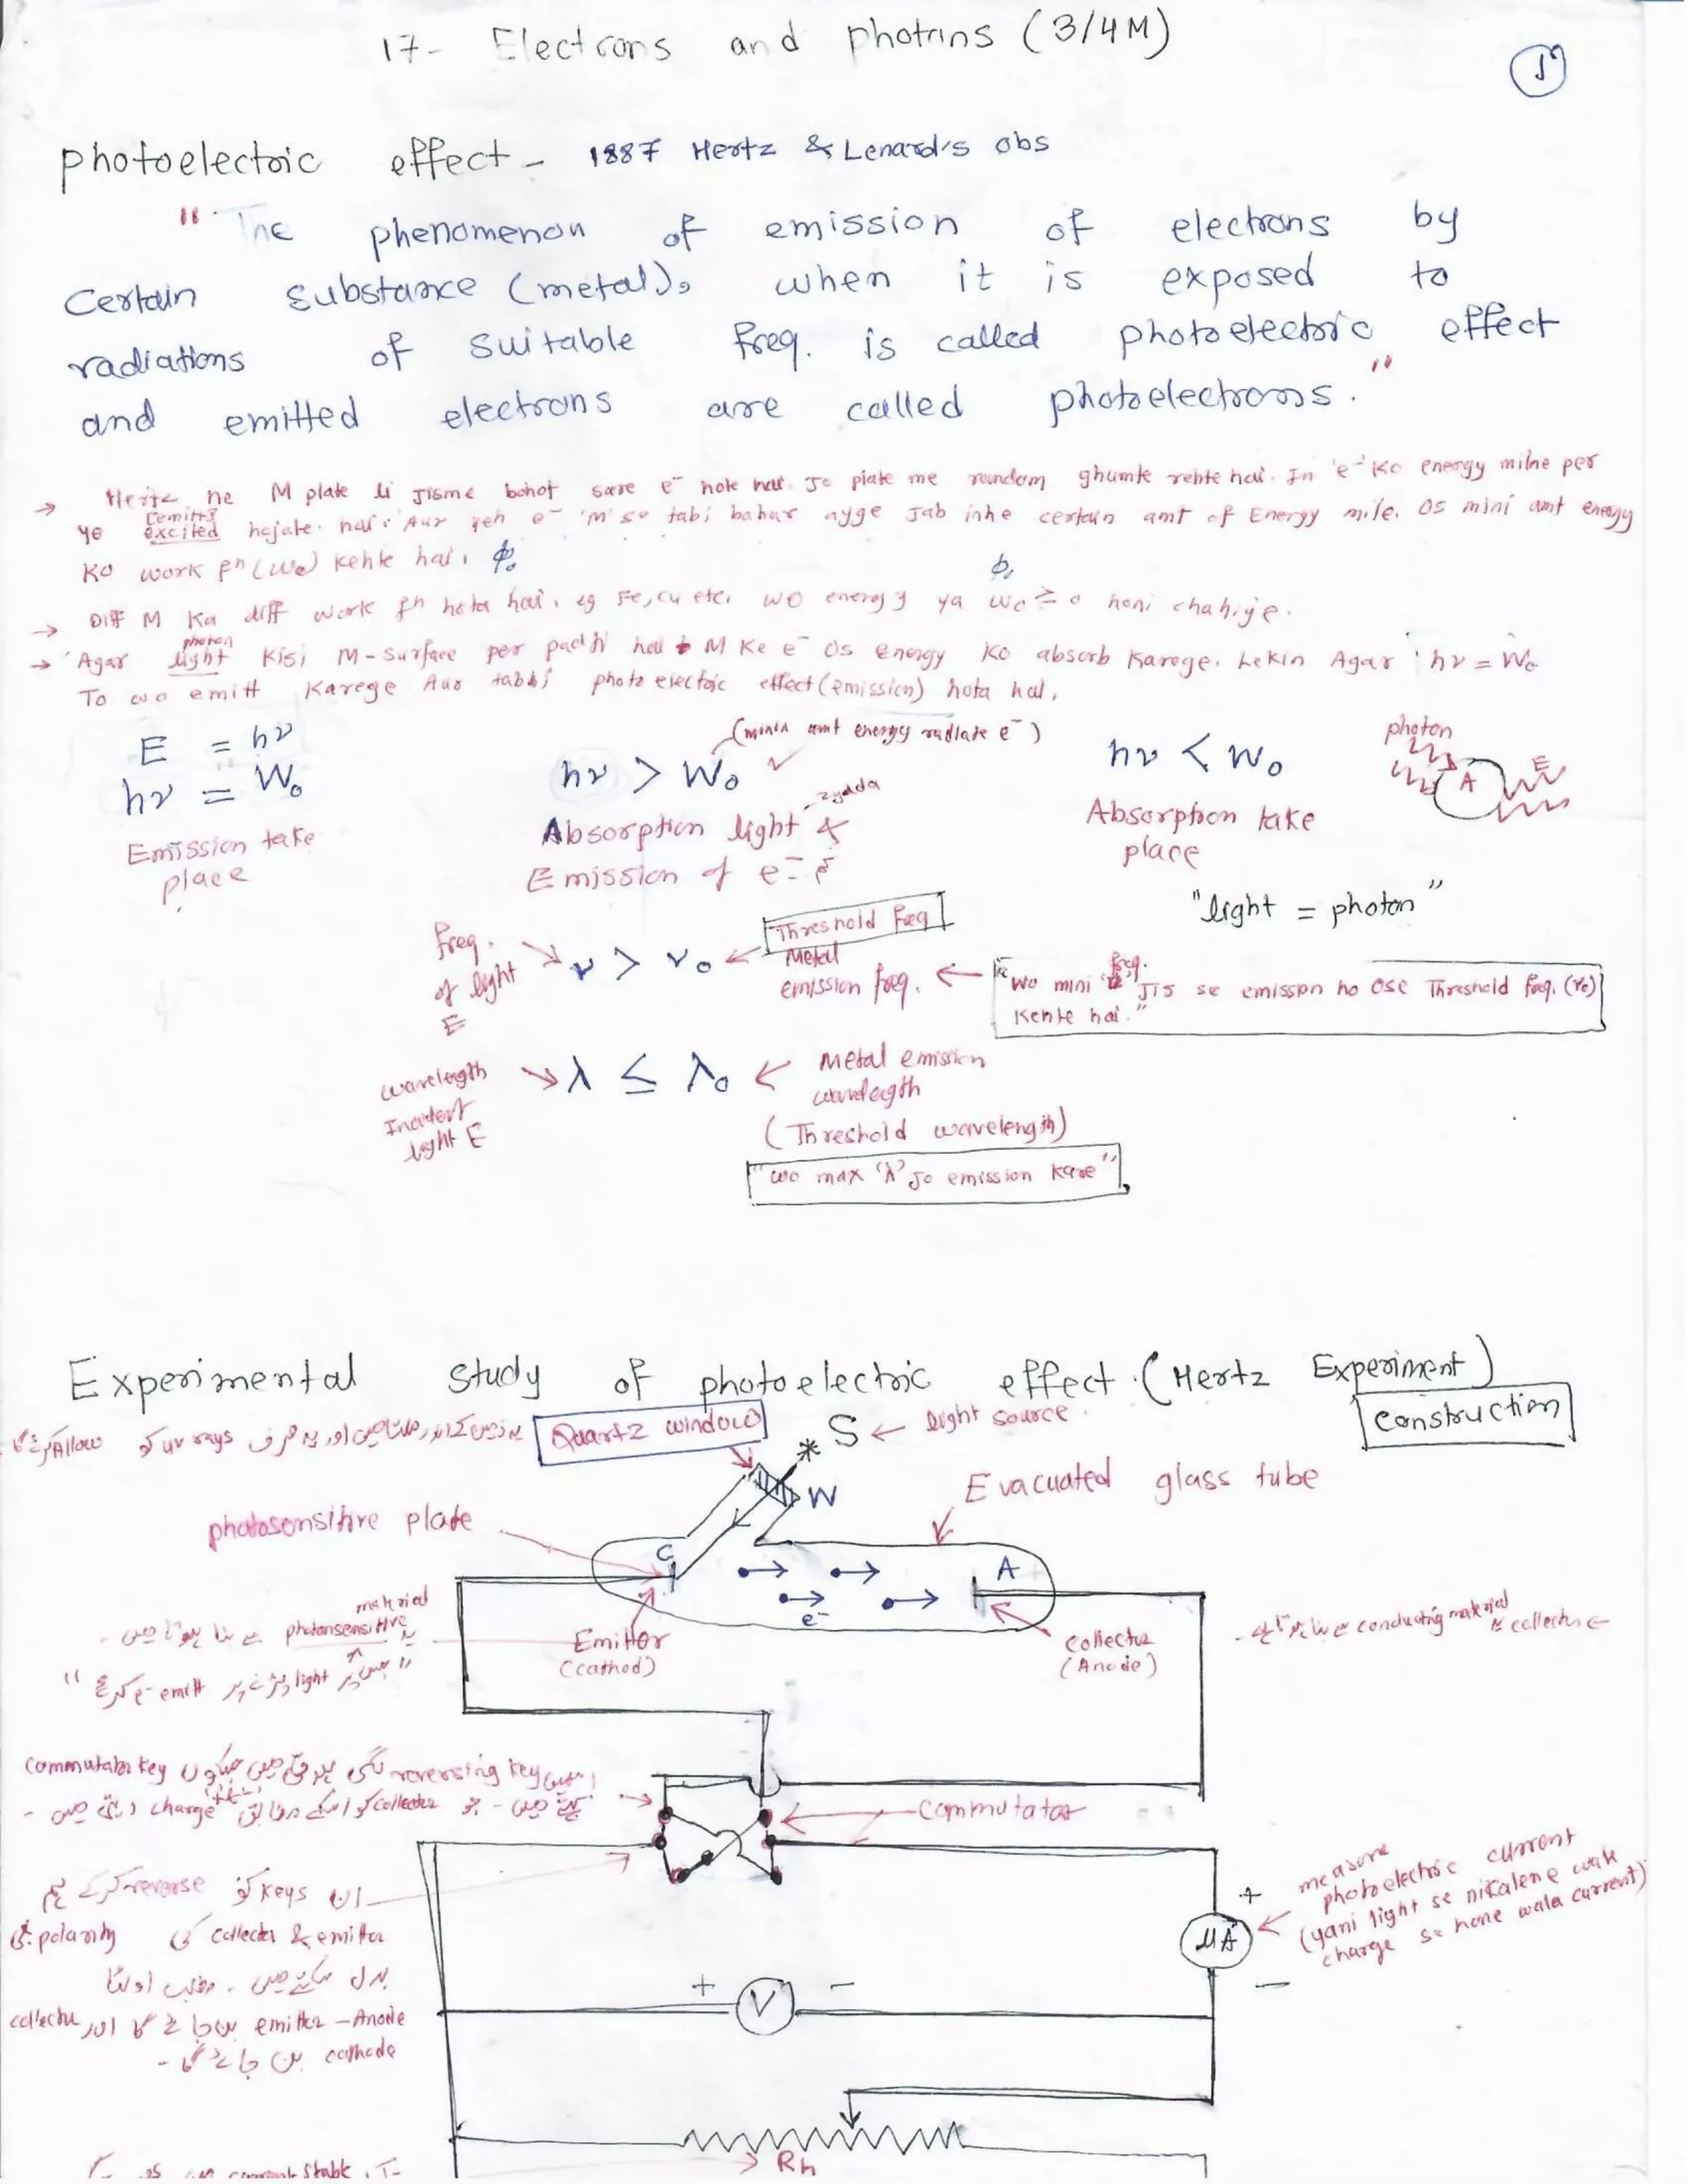 17- Electrons and photons (3/4M)
photoelectric effect - 1887 Hertz & Lenard's obs
" The phenomenon of emission of electrons by
Certain substance (metal), when it is exposed to
radiations of suitable freq. is called photoelectric effect
and emitted electrons are called photoelectrons."
→ Hertz ne M plate li jisme bohot sare e⁻ hote hai. Jo plate me random ghumte rehte hai. In 'e⁻' Ko energy milne per
ye excited hojate hai. Aur yeh e⁻ 'M' se tabi bahar ayge Jab inhe certain amt of Energy mile. Os mini amt energy
Ko work fn (W₀) kehte hai. ϕ₀
→ Diff M Ka diff work fn hota hai. eg Fe, Cu etc. wo energy ya W₀ ≥ 0 honi chahiye.
photon
→ Agar light Kisi M-surface per padti hai M Ke e⁻ Os energy Ko absorb Karege. Lekin Agar hν = W₀
To wo emitt Karege Aur tabhi photo electric effect (emission) hota hai.
E = hν
hν = W₀
Emission take
place
(minin amt energy radiate e⁻)
hν > W₀
zyada
Absorption light &
Emission of e⁻
hν < W₀
Absorption take
place
photon
A
E
"light = photon"
freq.
of light
E
ν > ν₀
Threshold freq
Metal
emission freq.
"Wo mini freq. Jis se emission ho ose Threshold freq. (ν₀)
Kehte hai."
wavelength
Incident
light E
λ ≤ λ₀
Metal emission
wavelength
(Threshold wavelength)
"wo max 'λ' Jo emission kare"
Experimental study of photoelectric effect. (Hertz Experiment)
Construction
Allow کرے گا uv rays کو
Quartz window
S ← light source
W
Evacuated glass tube
photosensitive plate
C
A
e⁻
Emitter
(cathod)
Collector
(Anode)
material
photonsensitive
light
e⁻ emitt
conducting material
collector
commutator key
reversing key
charge
collector کو
Commutator
ان keys کو reverse کرکے ہم
collector & emitter کی polarity
بدل سکتے ہیں
emitter - Anode بن جائے گا اور collector
cathode بن جائے گا -
measure
photoelectric current
(yani light se nikalene wale
charge se hone wala current)
+
μA
-
+ V -
Rh
current stable